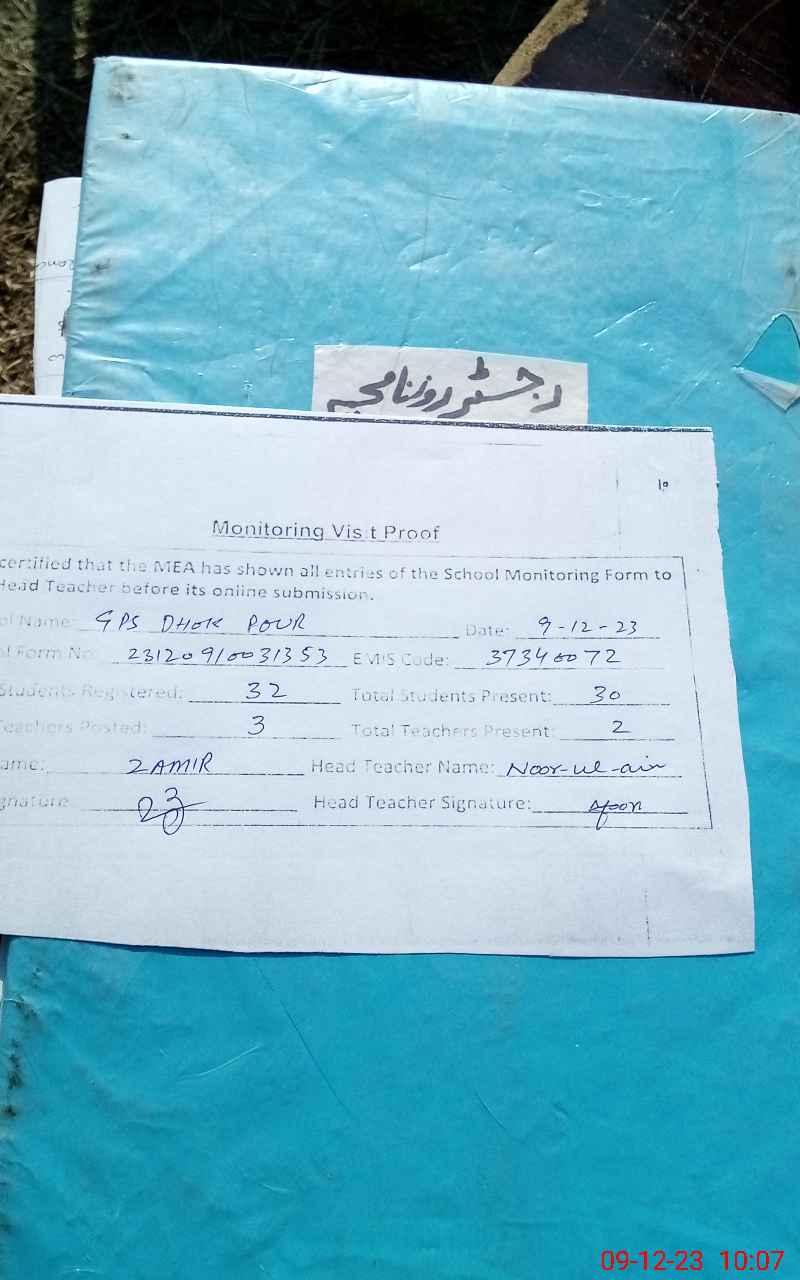 رجسٹر روزنامچہ
10
Monitoring Visit Proof
certified that the MEA has shown all entries of the School Monitoring Form to
Head Teacher before its online submission.
ol Name: GPS DHOK POUR Date: 9-12-23
l Form No: 23120910031353 EMIS Code: 37340072
Students Registered: 32 Total Students Present: 30
Teachers Posted: 3 Total Teachers Present: 2
ame: ZAMIR Head Teacher Name: Noor-ul-ain
gnature Head Teacher Signature: Noon
09-12-23 10:07